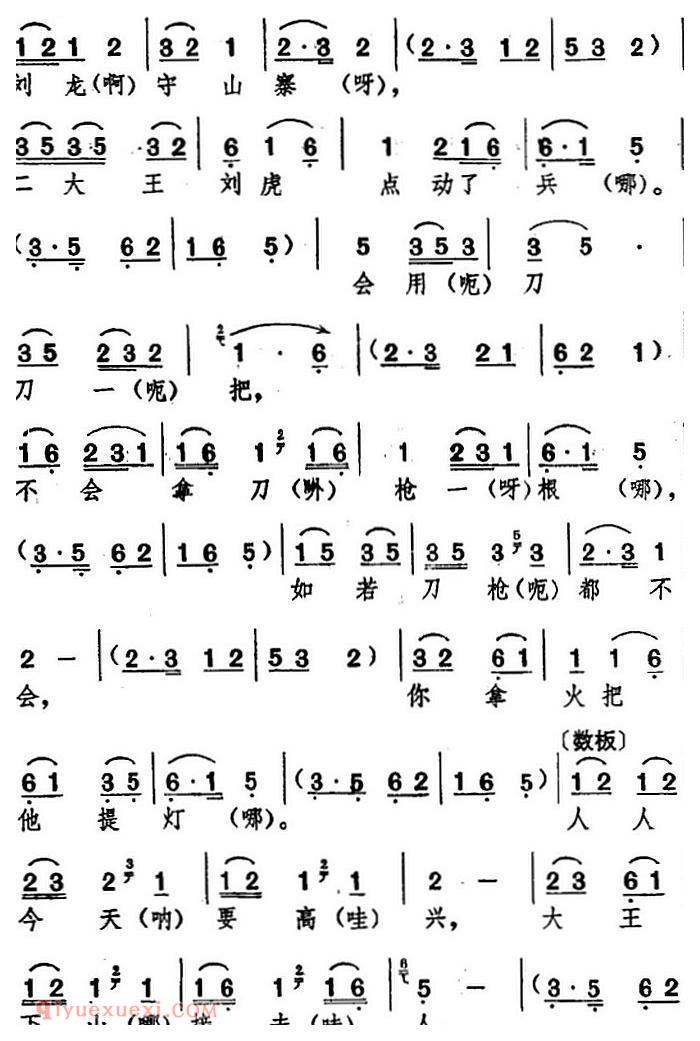 1 2 1 2 | 3 2 1 | 2·3 2 | (2·3 1 2 | 5 3 2) |
刘 龙(啊) 守 山 寨 (呀),
3 5 3 5 3 2 | 6 1 6 | 1 2 1 6 | 6·1 5
二 大 王 刘 虎 点 动 了 兵 (哪)。
(3·5 6 2 | 1 6 5) | 5 3 5 3 | 3 5 ·
会 用 (呃) 刀
3 5 2 3 2 | 2 1·6 | (2·3 2 1 | 6 2 1)
刀 一 (呃) 把,
1 6 2 3 1 | 1 6 1 2 1 6 | 1 2 3 1 | 6·1 5
不 会 拿 刀 枪 一 (呀) 根 (哪),
(3·5 6 2 | 1 6 5) | 1 5 3 5 | 3 5 3 5 3 | 2·3 1
如 若 刀 枪 (呃) 都 不
2 – | (2·3 1 2 | 5 3 2) | 3 2 6 1 | 1 1 6
会, 你 拿 火 把
〔数板〕
6 1 3 5 | 6·1 5 | (3·5 6 2 | 1 6 5) | 1 2 1 2
他 提 灯 (哪)。 人 人
2 3 2 3 1 | 1 2 1 2 1 | 2 – | 2 3 6 1
今 天 (呐) 要 高 (哇) 兴, 大 王
1 2 1 2 1 | 1 6 1 2 1 6 | 6 5 – | (3·5 6 2
下 山 (哪) 接 夫 (哇) 人
qiyuexuexi.COM